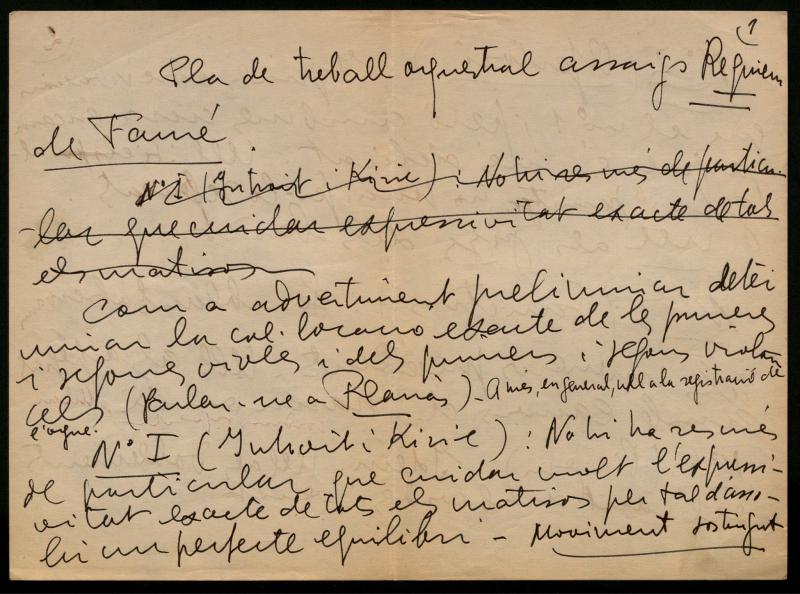 1
Pla de treball orquestral assaigs Requiem
de Fauré.
Nº I (Introit i Kirie): No hi res més de particu-
-lar que cuidar expressivitat exacte de tots
els matisos
Com a advertiment preliminar deter
minar la col·locació exacte de les primeres
i segones violes i dels primers i segons violon
cels (Parlar-ne a Planàs) - A més, en general, ull a la registració de
l'orgue.
Nº I (Introit i Kirie): No hi ha res més
de particular que cuidar molt l'expressi-
vitat exacte de tots els matisos per tal d'asso-
lir un perfecte equilibri - Moviment sostingut